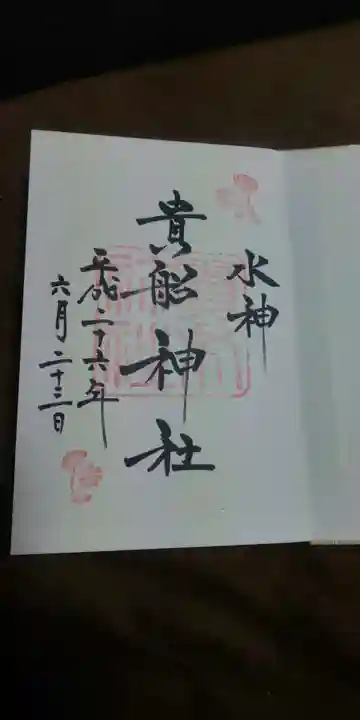 水神
貴船神社
平成二十六年
六月二十三日